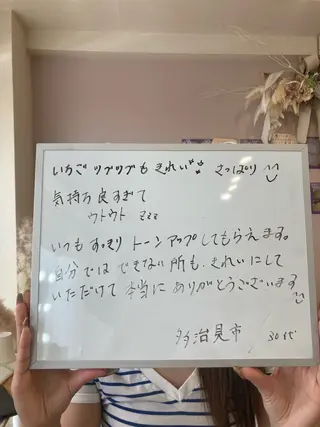 いちごツブツブも きれい さっぱり
気持ち良すぎて
ウトウト zzz
いつもすっきり トーンアップしてもらえます。
自分では できない所も、きれいにして
いただけて 本当に ありがとうございます
多治見市 30代